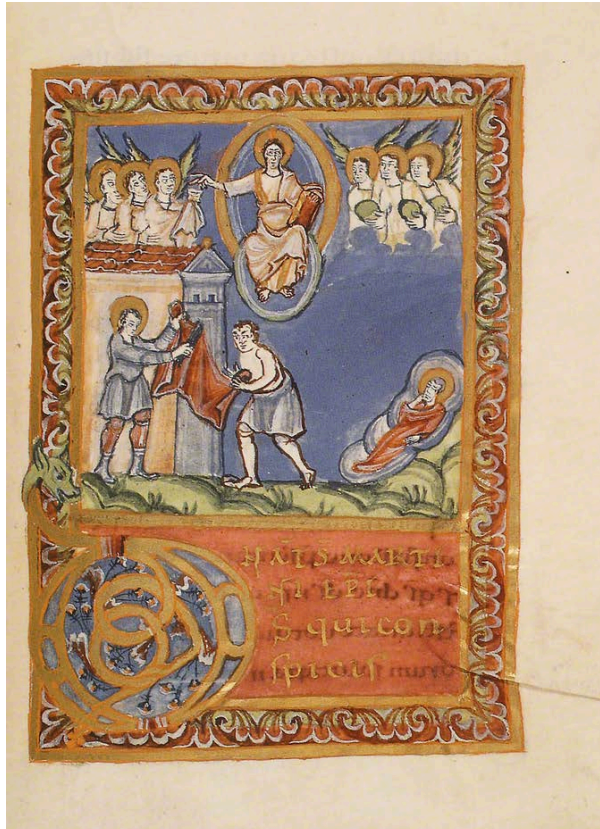 NAT S MARTI
NI EPI
D S qui con
spicis